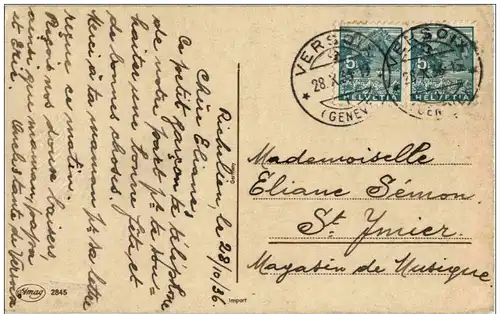 Richelien, le 28/10/36.
Chère Eliane,
Ce petit garçon te téléphone
de notre part pr. te sou-
haiter une bonne fête, et
de bonnes choses.
Merci à ta maman pr. sa lettre
reçue ce matin.
Reçois nos doux baisers,
ainsi que maman, papa
et Eric.
VERSOIX
28.X.36
(GENEV
5
HELVETIA
VERSOIX
(GEN
5
HELVETIA
Mademoiselle
Eliane Sémon
St. Imier
Magasin de Musique
Amag 2845
Import